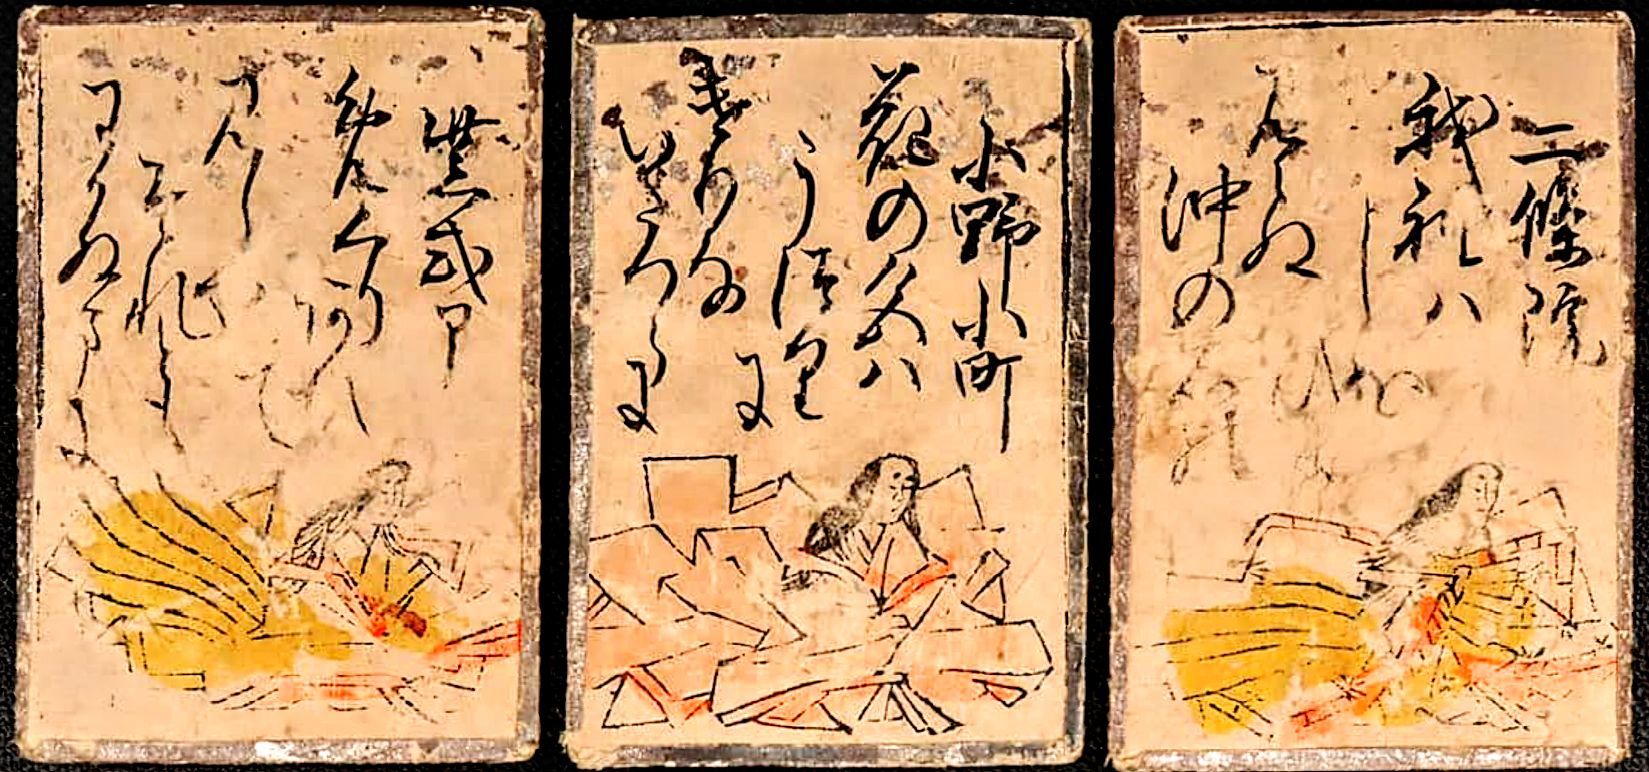 二條院
我袖ハ
し
見えぬ
沖の
小野小町
花の色ハ
うつりに
けりな
いたつらに
紫式部
めくり阿ひ
て
見し
それとも
わかぬまに